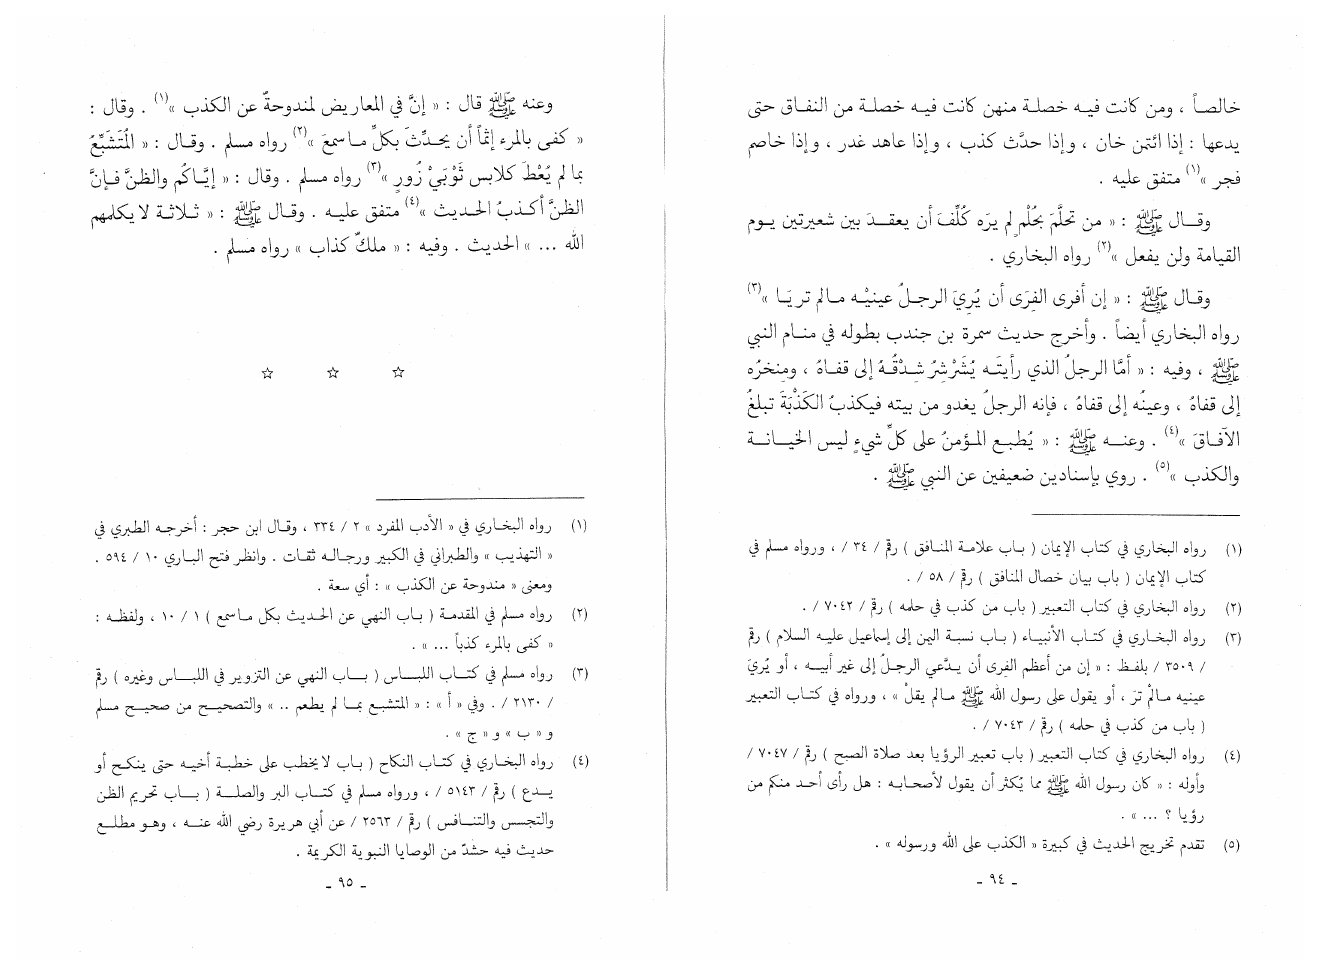 خالصاً ، ومن كانت فيه خصلة منهن كانت فيه خصلة من النفاق حتى
يدعها : إذا ائتمن خان ، وإذا حدَّث كذب ، وإذا عاهد غدر ، وإذا خاصم
فجر »(١) متفق عليه .
وقال ﷺ : « من تحلَّمَ بحُلْمٍ لم يرَه كُلِّفَ أن يعقد بين شعيرتين يوم
القيامة ولن يفعل »(٢) رواه البخاري .
وقال ﷺ : « إن أفرى الفِرَى أن يُرِيَ الرجلُ عينيْه مالم تريَا »(٣)
رواه البخاري أيضاً . وأخرج حديث سمرة بن جندب بطوله في منام النبي
ﷺ ، وفيه : « أمَّا الرجلُ الذي رأيتَه يُشَرْشِرُ شِدْقُهُ إلى قفاهُ ، ومنخرُه
إلى قفاهُ ، وعينُه إلى قفاهُ ، فإنه الرجلُ يغدو من بيته فيكذبُ الكَذْبَةَ تبلغُ
الآفاقَ »(٤) . وعنه ﷺ : « يُطبع المؤمنُ على كلِّ شيءٍ ليس الخيانة
والكذب »(٥) . روي بإسنادين ضعيفين عن النبي ﷺ .
(١) رواه البخاري في كتاب الإيمان ( باب علامة المنافق ) رقم / ٣٤ / ، ورواه مسلم في
كتاب الإيمان ( باب بيان خصال المنافق ) رقم / ٥٨ / .
(٢) رواه البخاري في كتاب التعبير ( باب من كذب في حلمه ) رقم / ٧٠٤٢ / .
(٣) رواه البخاري في كتاب الأنبياء ( باب نسبة اليمن إلى إسماعيل عليه السلام ) رقم
/ ٣٥٠٩ / بلفظ : « إن من أعظم الفِرى أن يدَّعي الرجلُ إلى غير أبيه ، أو يُرِيَ
عينيه مالمْ ترَ ، أو يقول على رسول الله ﷺ مالم يقلْ » ، ورواه في كتاب التعبير
( باب من كذب في حلمه ) رقم / ٧٠٤٣ / .
(٤) رواه البخاري في كتاب التعبير ( باب تعبير الرؤيا بعد صلاة الصبح ) رقم / ٧٠٤٧ /
وأوله : « كان رسول الله ﷺ مما يُكثر أن يقول لأصحابه : هل رأى أحد منكم من
رؤيا ؟ ... » .
(٥) تقدم تخريج الحديث في كبيرة « الكذب على الله ورسوله » .
- ٩٤ -
وعنه ﷺ قال : « إنَّ في المعاريض لمندوحةٌ عن الكذب »(١) . وقال :
« كفى بالمرء إثماً أن يحدِّثَ بكلِّ ماسمعَ »(٢) رواه مسلم . وقال : « المُتَشَبِّعُ
بما لم يُعْطَ كلابس ثَوْبَيْ زُورٍ »(٣) رواه مسلم . وقال : « إيَّاكُم والظنَّ فإنَّ
الظنَّ أكذبُ الحديث »(٤) متفق عليه . وقال ﷺ : « ثلاثة لا يكلمهم
الله ... » الحديث . وفيه : « ملكٌ كذاب » رواه مسلم .
☆ ☆ ☆
(١) رواه البخاري في « الأدب المفرد » ٢ / ٣٣٤ ، وقال ابن حجر : أخرجه الطبري في
« التهذيب » والطبراني في الكبير ورجاله ثقات . وانظر فتح الباري ١٠ / ٥٩٤ .
ومعنى « مندوحة عن الكذب » : أي سعة .
(٢) رواه مسلم في المقدمة ( باب النهي عن الحديث بكل ماسمع ) ١ / ١٠ ، ولفظه :
« كفى بالمرء كذباً ... » .
(٣) رواه مسلم في كتاب اللباس ( باب النهي عن التزوير في اللباس وغيره ) رقم
/ ٢١٣٠ / . وفي « أ » : « المتشبع بما لم يطعم .. » والتصحيح من صحيح مسلم
و « ب » و « ج » .
(٤) رواه البخاري في كتاب النكاح ( باب لا يخطب على خطبة أخيه حتى ينكح أو
يدع ) رقم / ٥١٤٣ / ، ورواه مسلم في كتاب البر والصلة ( باب تحريم الظن
والتجسس والتنافس ) رقم / ٢٥٦٣ / عن أبي هريرة رضي الله عنه ، وهو مطلع
حديث فيه حشدٌ من الوصايا النبوية الكريمة .
- ٩٥ -